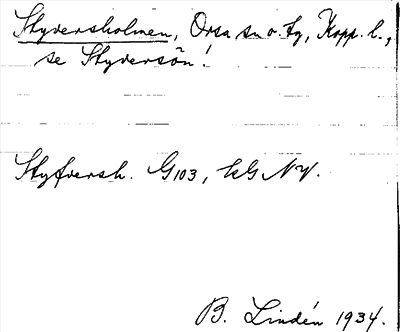 Styversholmen, Orsa sn o. tg, Kopp. l.,
se Styversön!
Styfversh. G103, kG NV.
B. Lindén 1934.